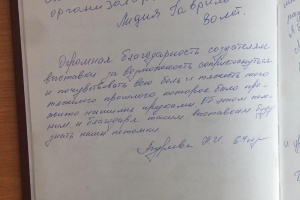 организато
Лидия Гаврило
80 лет.
Огромная благодарность создателям
выставки за возможность соприкоснуться
и почувствовать всю боль и тяжесть того
тяжелого прошлого, которое было про-
жито нашими предками. Об этом пом-
ним и благодаря таким выставкам будут
знать наши потомки.
Н.И. 64 г